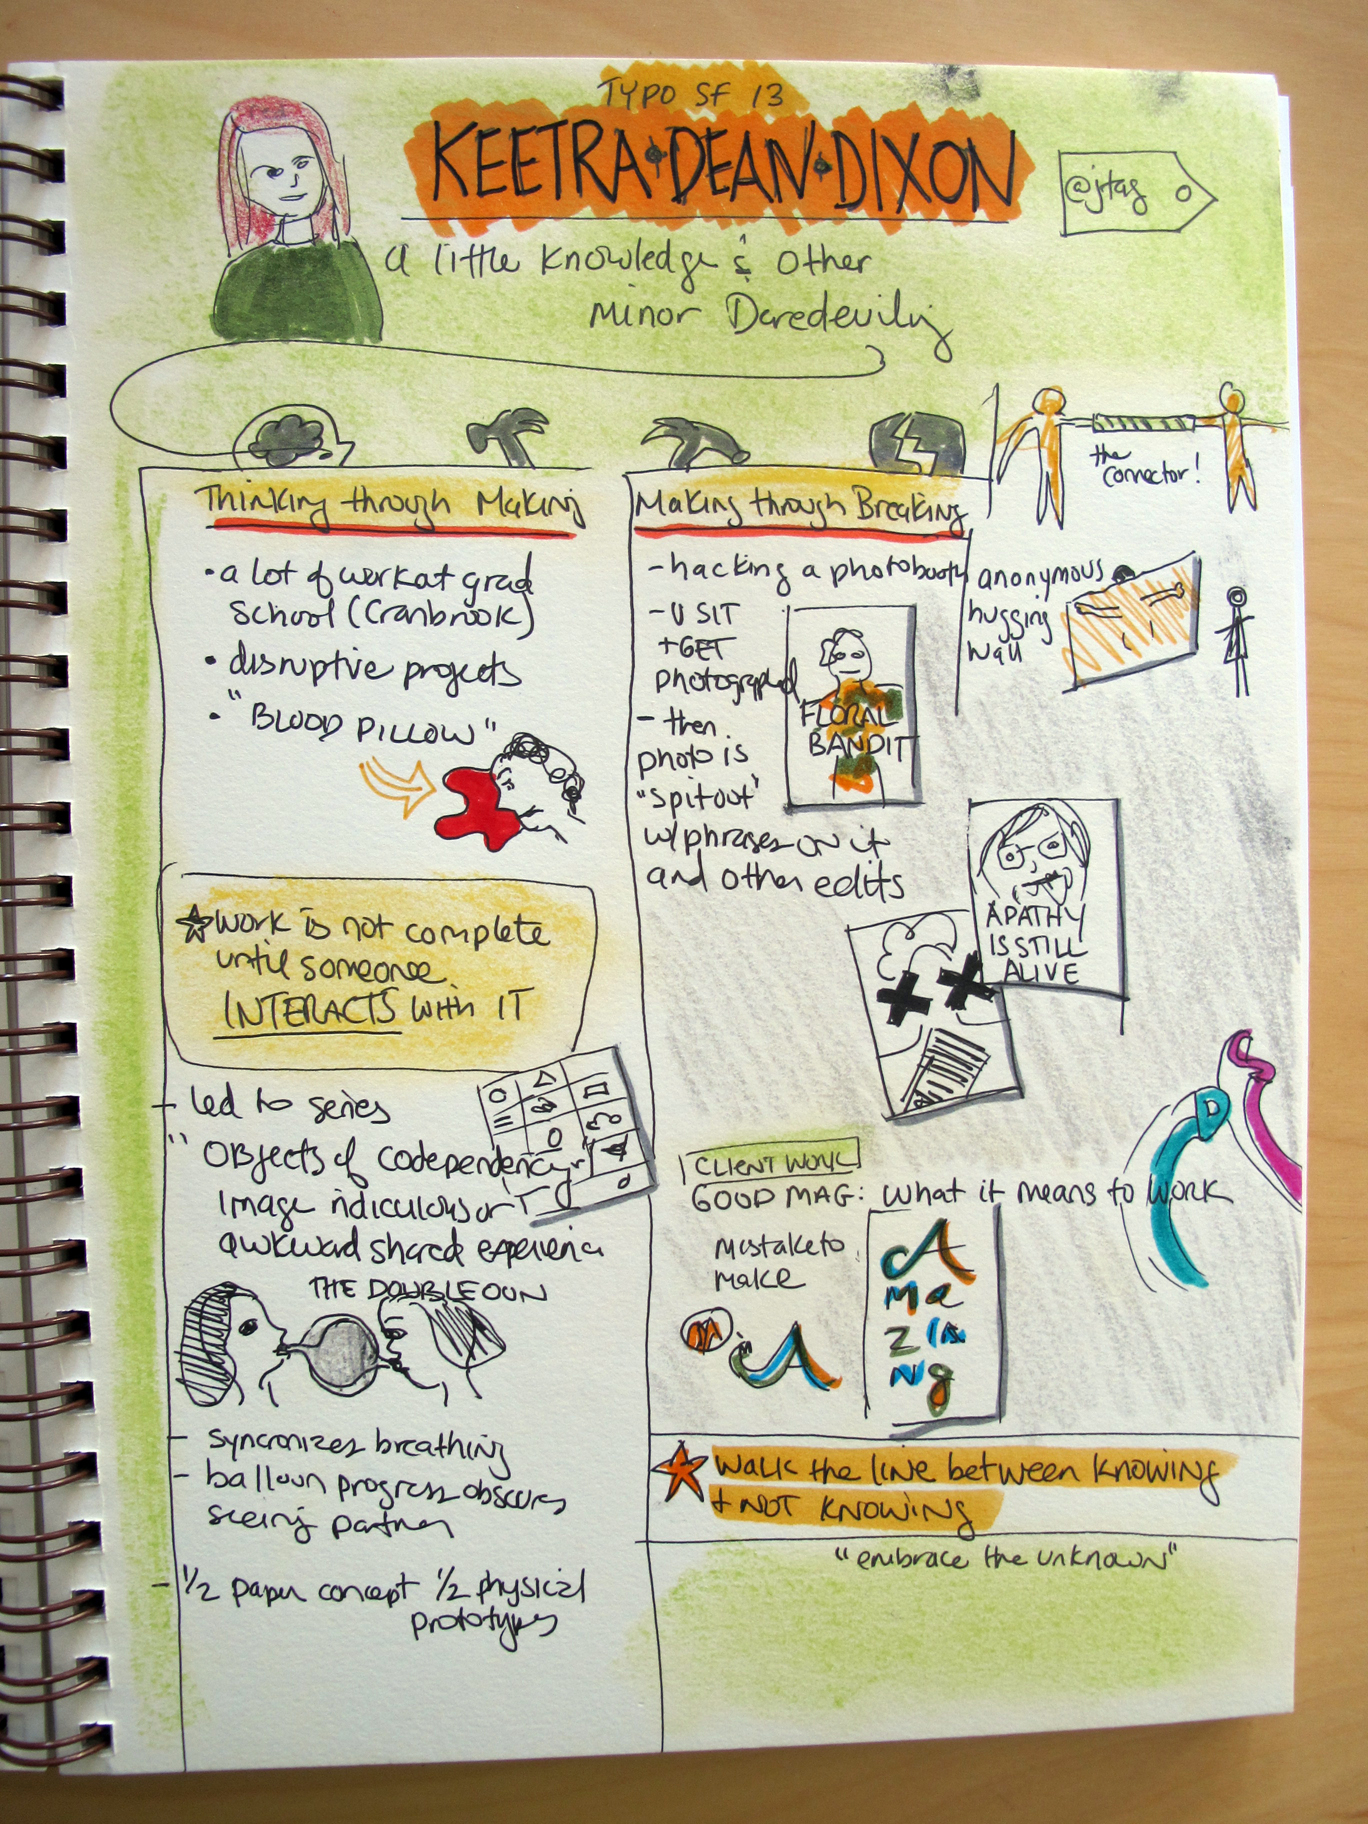 TYPO SF 13
KEETRA·DEAN·DIXON
@jrtag
a little knowledge & other
Minor Daredevilry
Thinking through Making
• a lot of work at grad
school (Cranbrook)
• disruptive projects
• "BLOOD PILLOW"
WORK is not complete
until someone
INTERACTS with IT
- led to series
"Objects of codependency"
Image ridiculous or
awkward shared experience
THE DOUBLEOON
- syncronizes breathing
- balloon progress obscures
seeing partner
- 1/2 paper concept 1/2 physical
prototypes
Making through Breaking
- hacking a photobooth
- U SIT
+ GET
photographed
- then
photo is
"spit out"
w/ phrases on it
and other edits
FLORAL
BANDIT
the
connector!
anonymous
hugging
wall
APATHY
IS STILL
ALIVE
CLIENT WORK
GOOD MAG: what it means to WORK
Mistake to
make
A
Ma
ZIN
Ng
WALK the LINE between KNOWING
+ NOT KNOWING
"embrace the unknown"